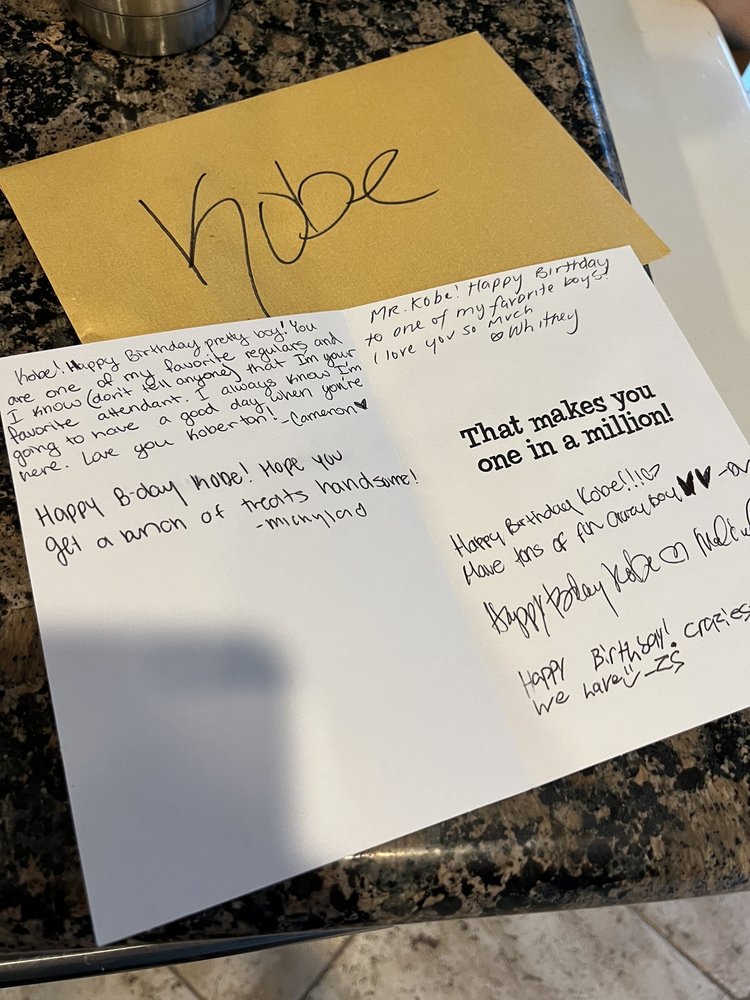 Kobe
Kobe! Happy Birthday pretty boy! You
are one of my favorite regulars and
I know (don't tell anyone) that I'm your
favorite attendant. I always know I'm
going to have a good day when you're
here. Love you Koberton! -Cameron♥
Happy B-day Kobe! Hope you
get a bunch of treats handsome!
Mr. Kobe! Happy Birthday
to one of my favorite boys!
I love you so much
♡Whitney
That makes you
one in a million!
Happy Birthday Kobe!!!♡
Have tons of fun boy♥♥
Happy Bday Kobe♡
Happy Birthday! Craziest
we have:) -IS